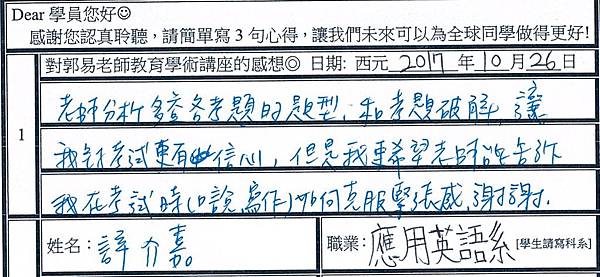 Dear 學員您好☺
感謝您認真聆聽,請簡單寫 3 句心得,讓我們未來可以為全球同學做得更好!
對郭易老師教育學術講座的感想◎ 日期: 西元 2017 年 10 月 26 日
老師分析多益各考題的題型,和考題破解,讓
1
我對考試更有信心,但是我更希望老師能告訴
我在考試時(口說、寫作)如何克服緊張感,謝謝.
姓名: 許亦嘉
職業: 應用英語系 [學生請寫科系]